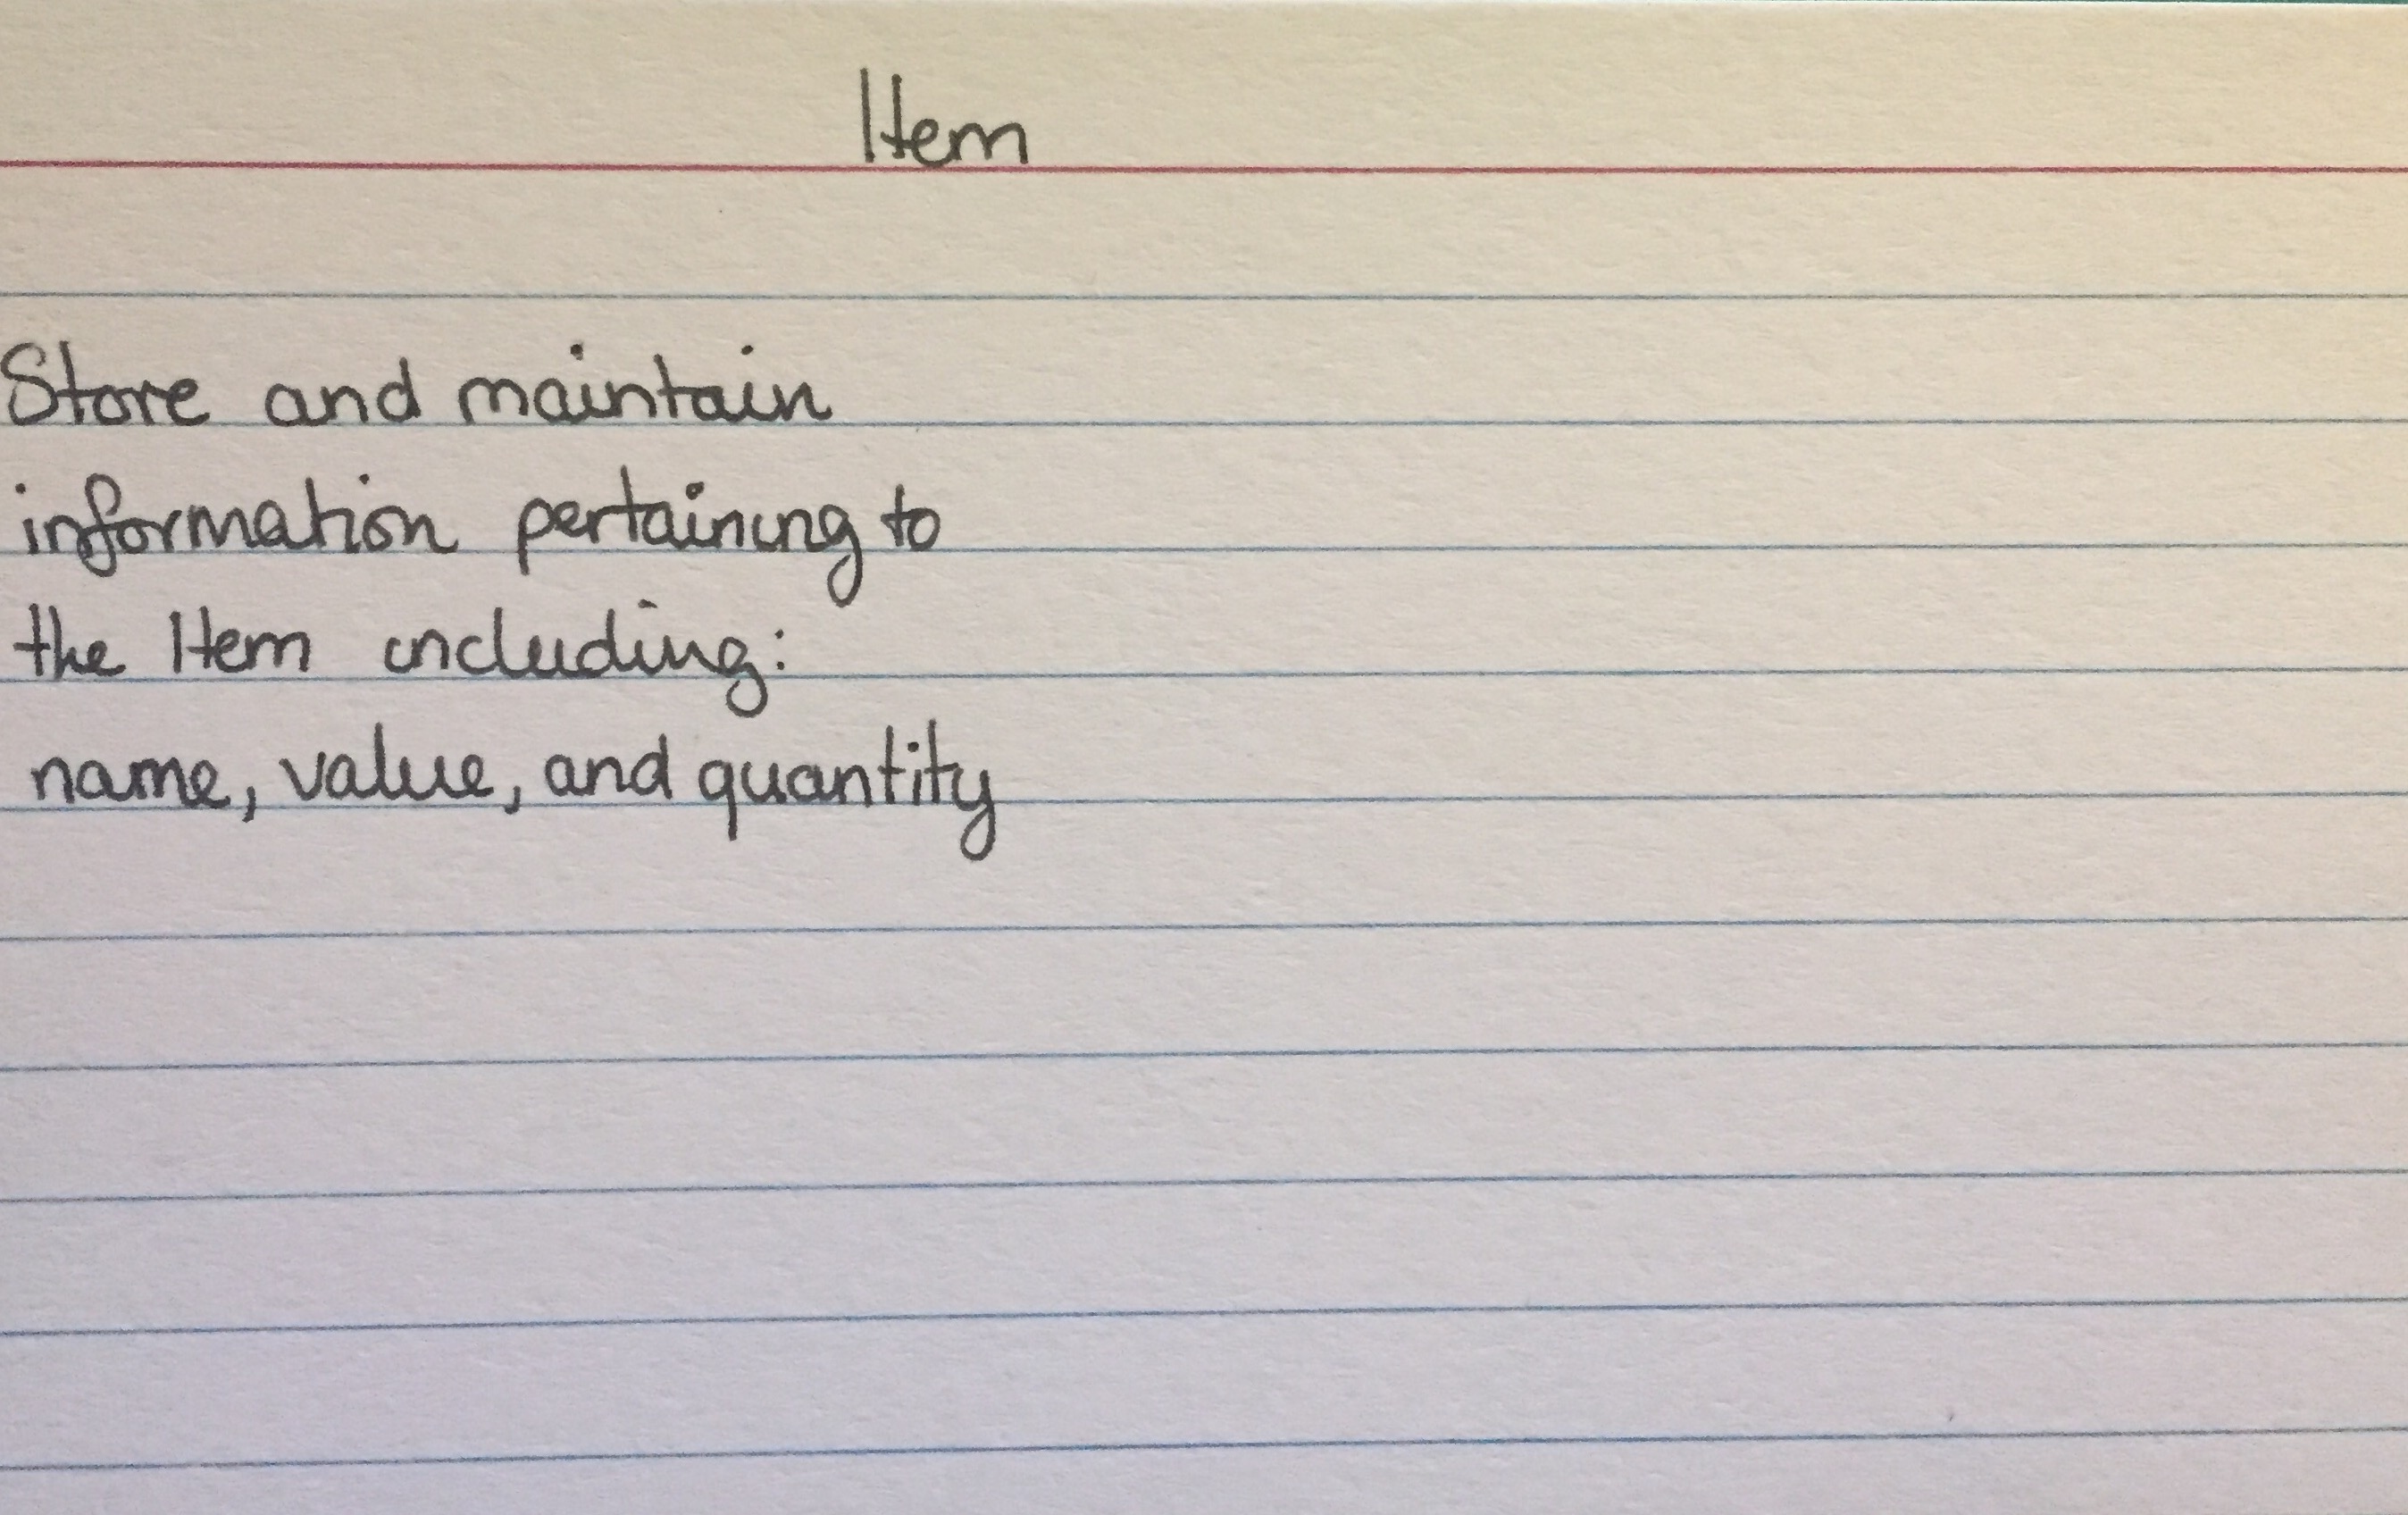 Item
Store and maintain
information pertaining to
the Item including:
name, value, and quantity